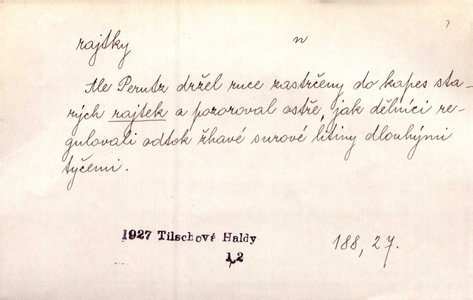 rajtky n ?
Ale Perutz držel ruce zastrčeny do kapes sta-
rých rajtek a pozoroval ostře, jak dělníci re-
gulovali odtok žhavé surové litiny dlouhými
tyčemi.
1927 Tilschové Haldy 188, 27.
1,2